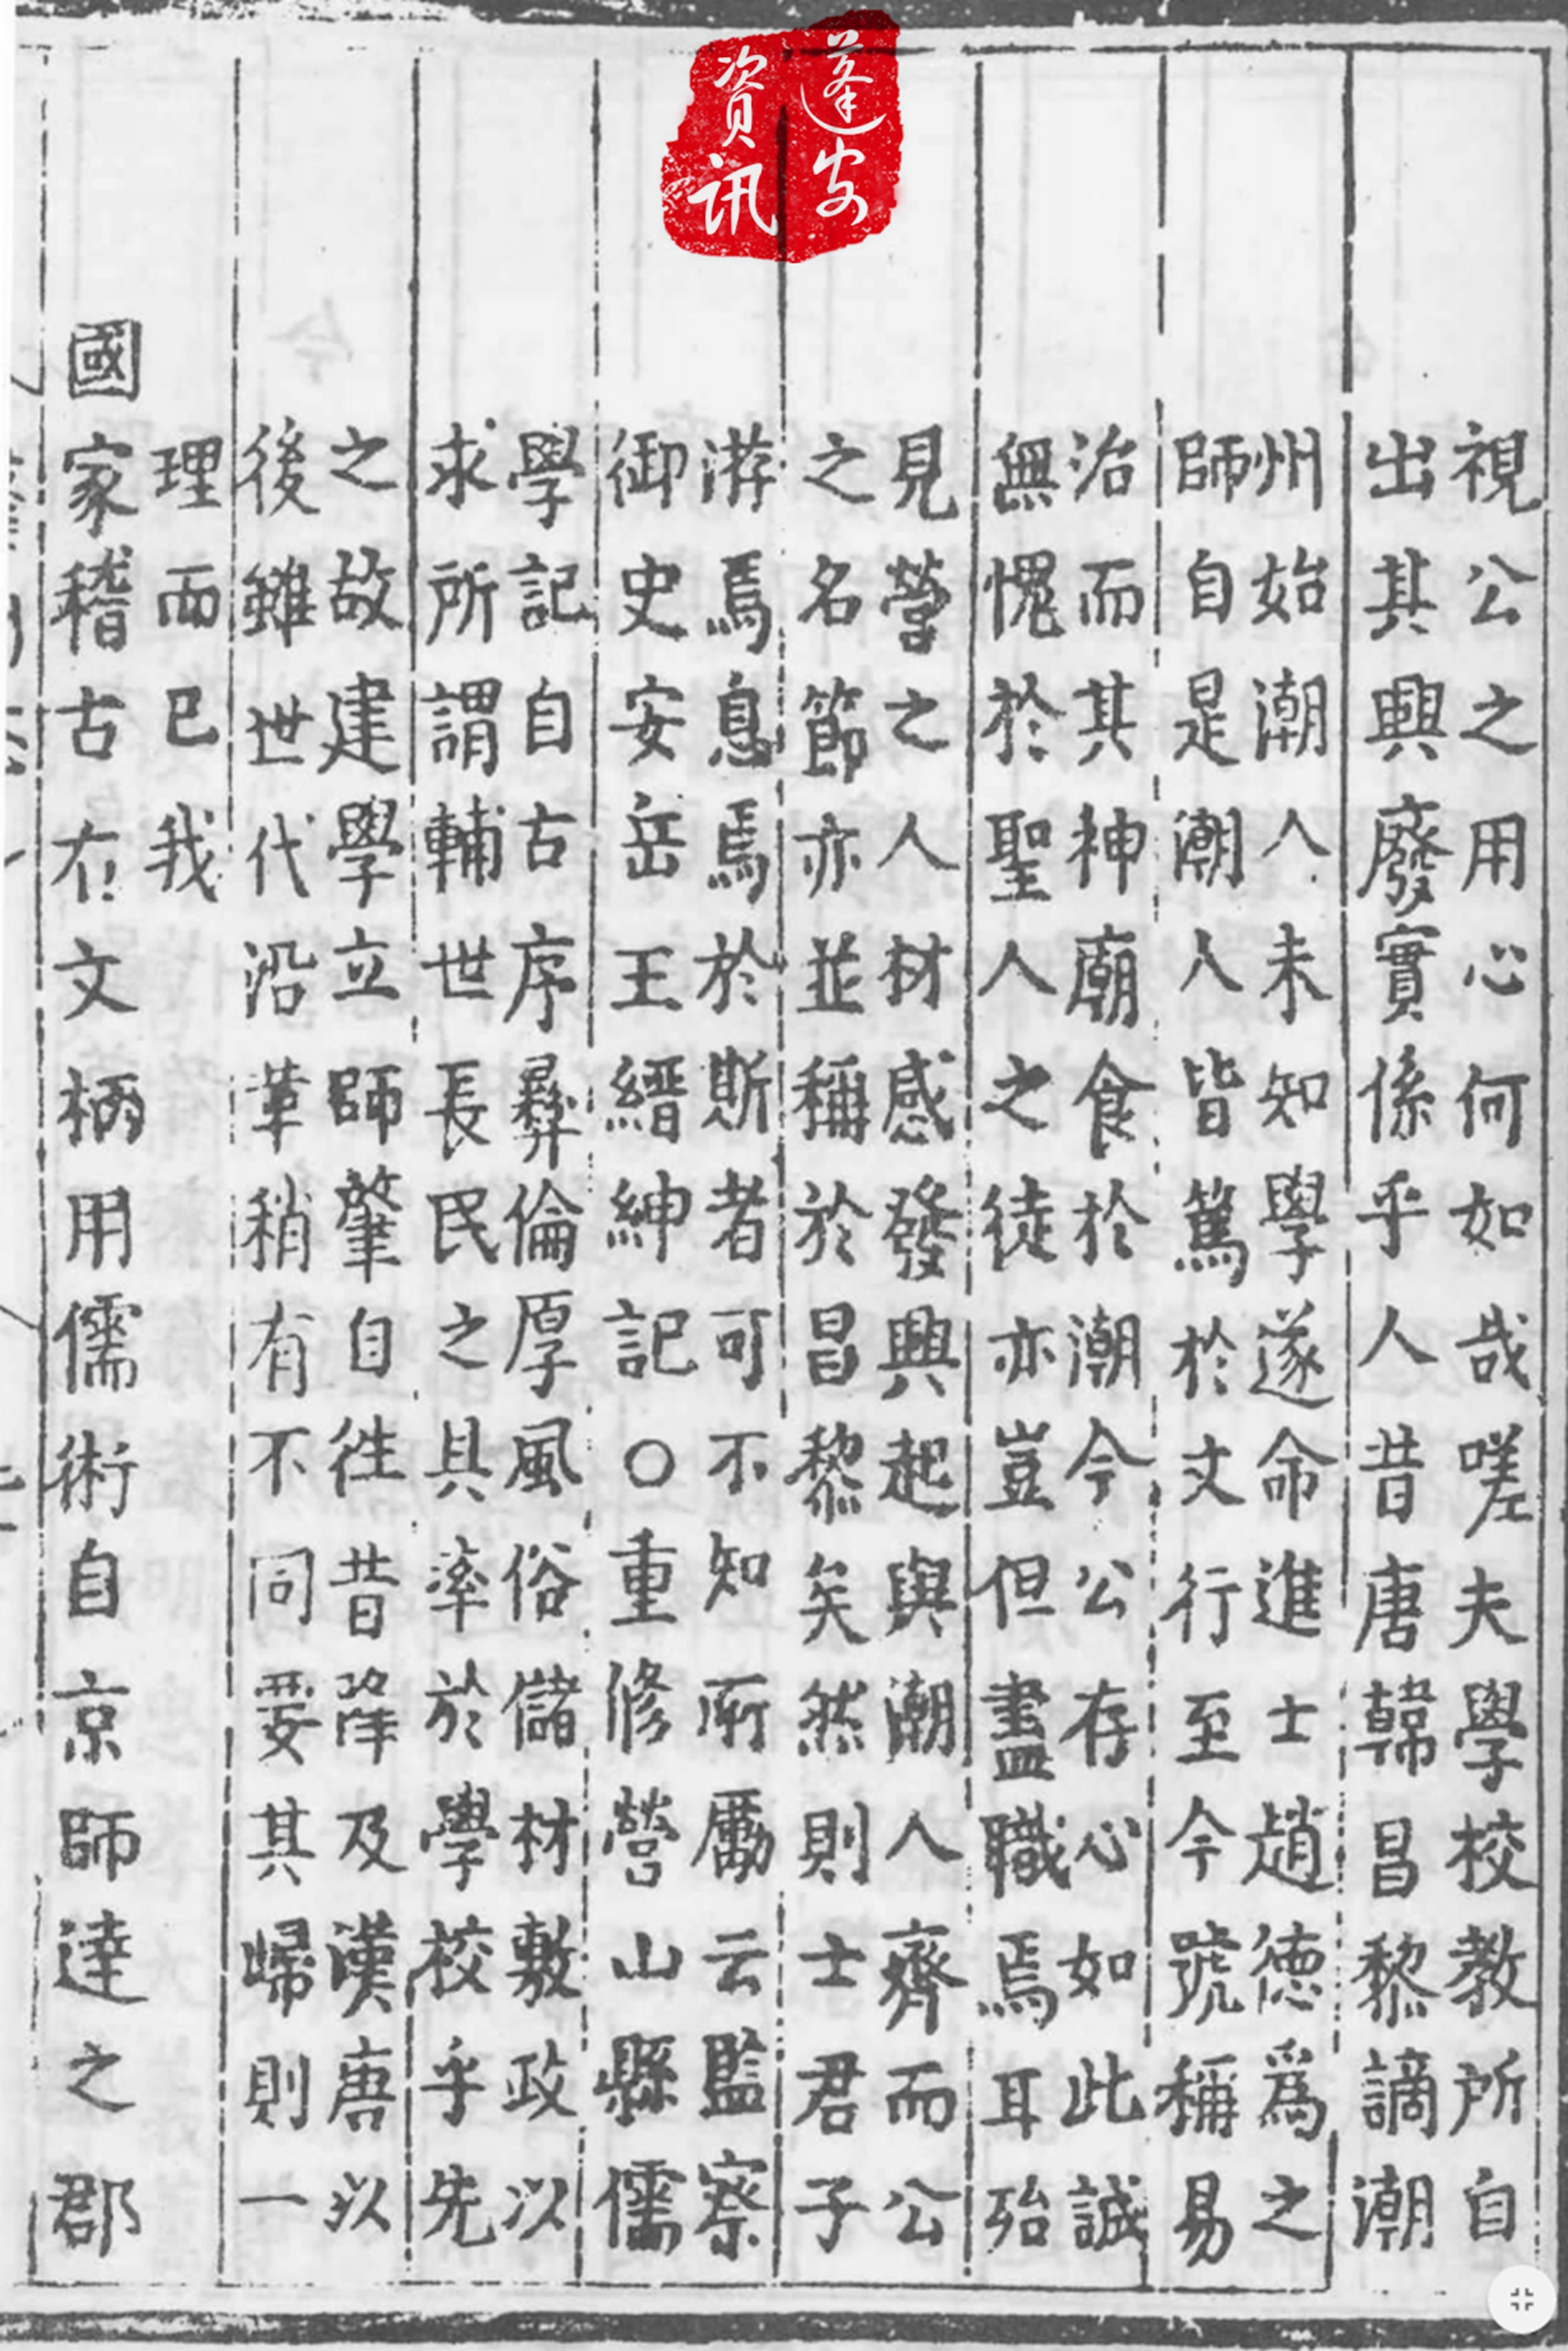 蓬安
資訊
視公之用心何如哉嗟夫學校教所自
出其興廢實係乎人昔唐韓昌黎謫潮
州始潮人未知學遂命進士趙德為之
師自是潮人皆篤於文行至今號稱易
治而其神廟食於潮今公存心如此誠
無愧於聖人之徒亦豈但盡職焉耳殆
見營之人材感發興起與潮人齊而公
之名節亦並稱於昌黎矣然則士君子
游焉息焉於斯者可不知所勵云監察
御史安岳王縉紳記○重修營山縣儒
學記自古序彝倫厚風俗儲材敷政以
求所謂輔世長民之具率於學校乎先
之故建學立師肇自徃昔降及漢唐以
後雖世代沿革稍有不同要其歸則一
理而已我
國家稽古右文柄用儒術自京師達之郡